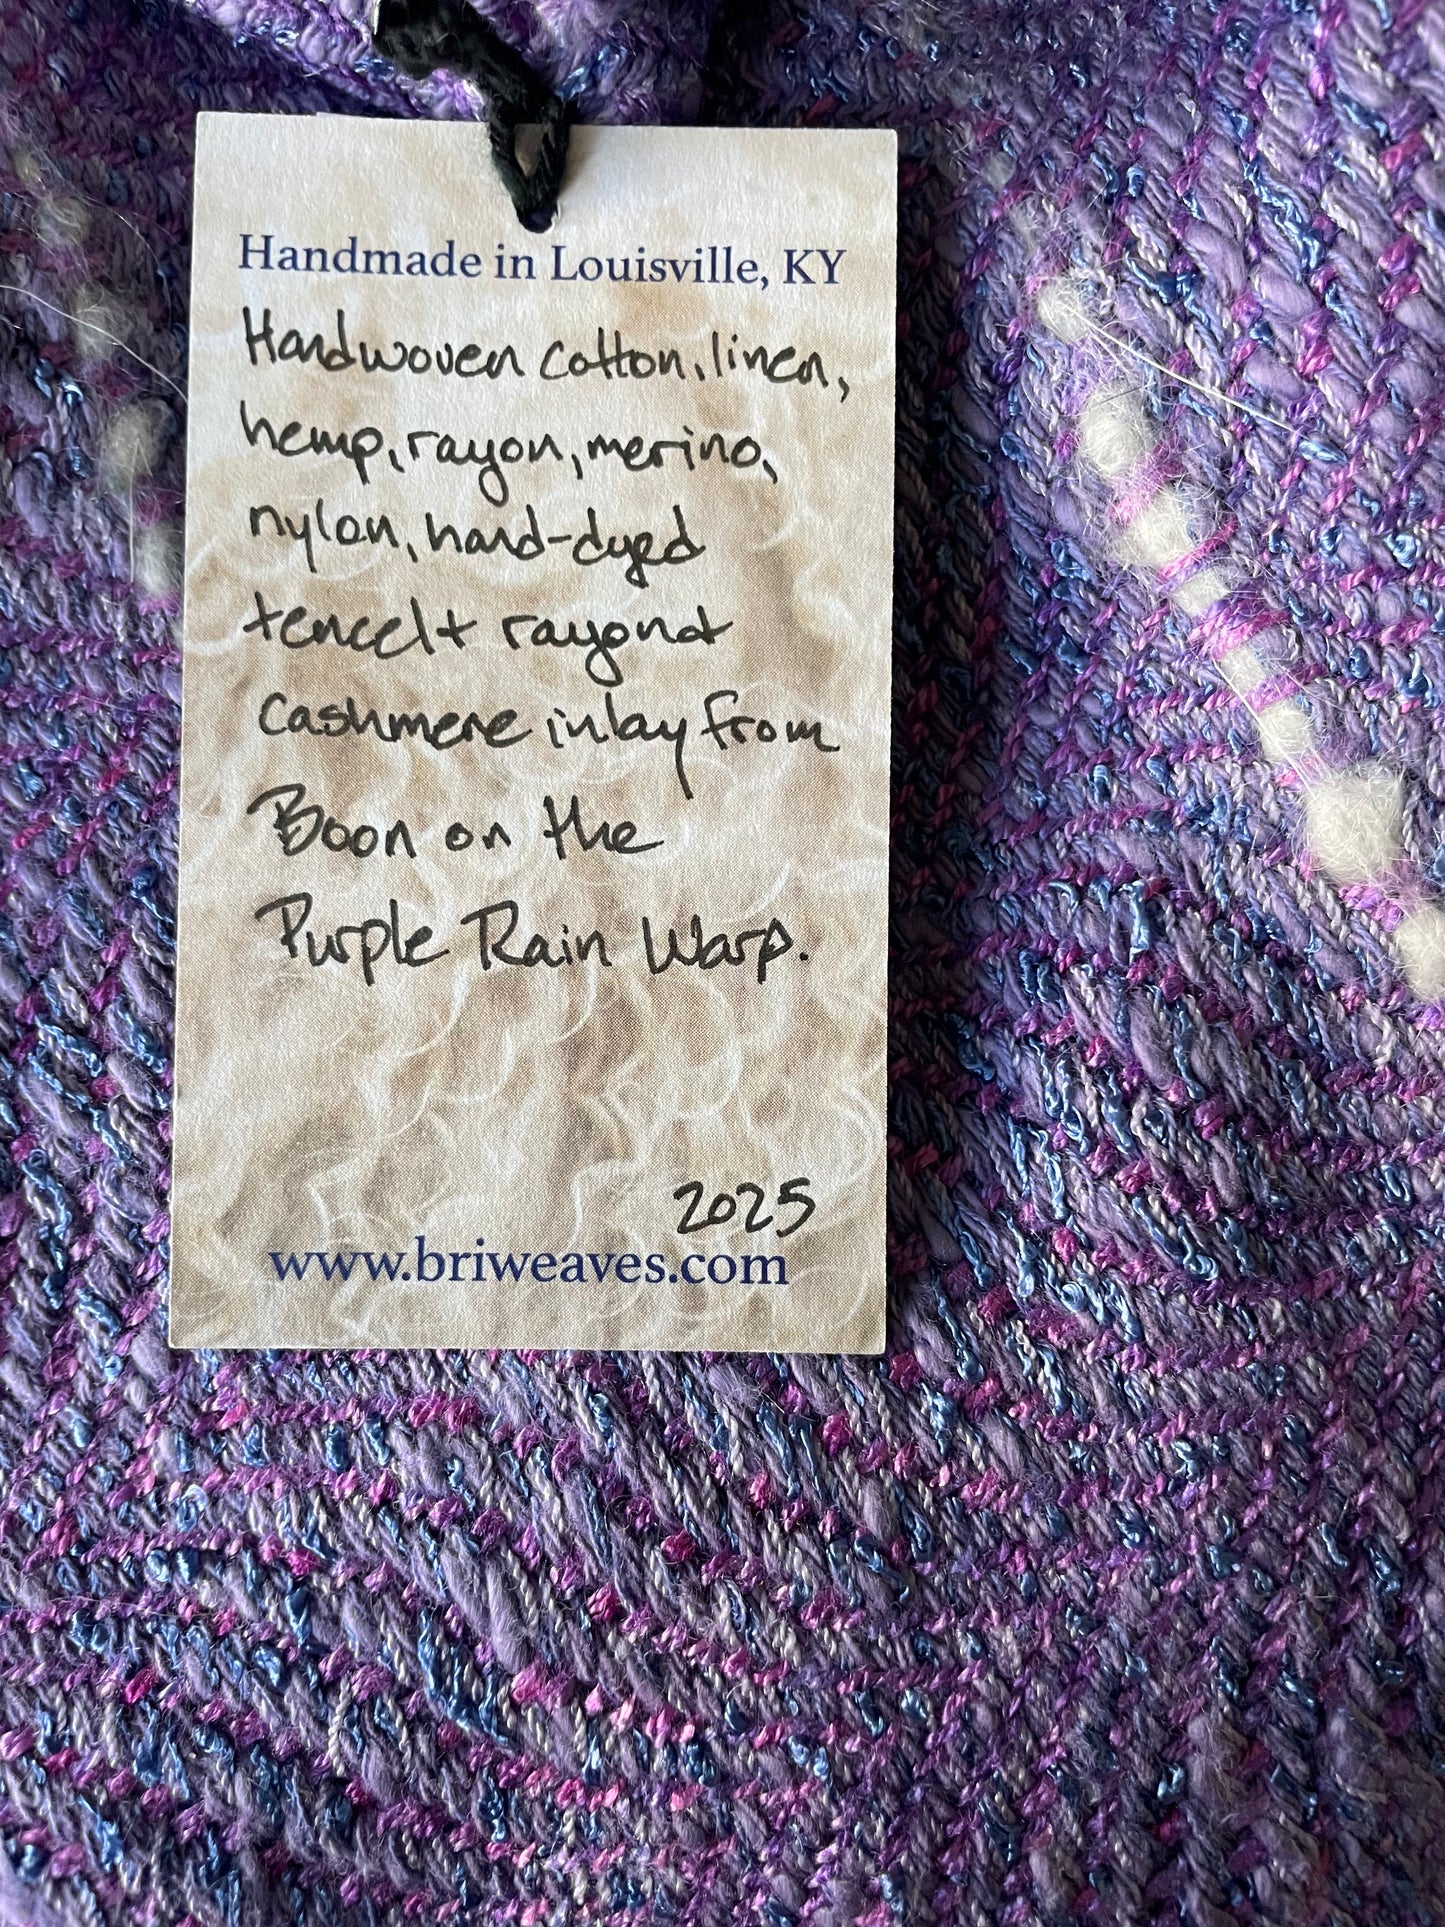 Handmade in Louisville, KY
Handwoven cotton, linen,
hemp, rayon, merino,
nylon, hand-dyed
tencel + rayon +
cashmere inlay from
Boon on the
Purple Rain Warp.
2025
www.briweaves.com